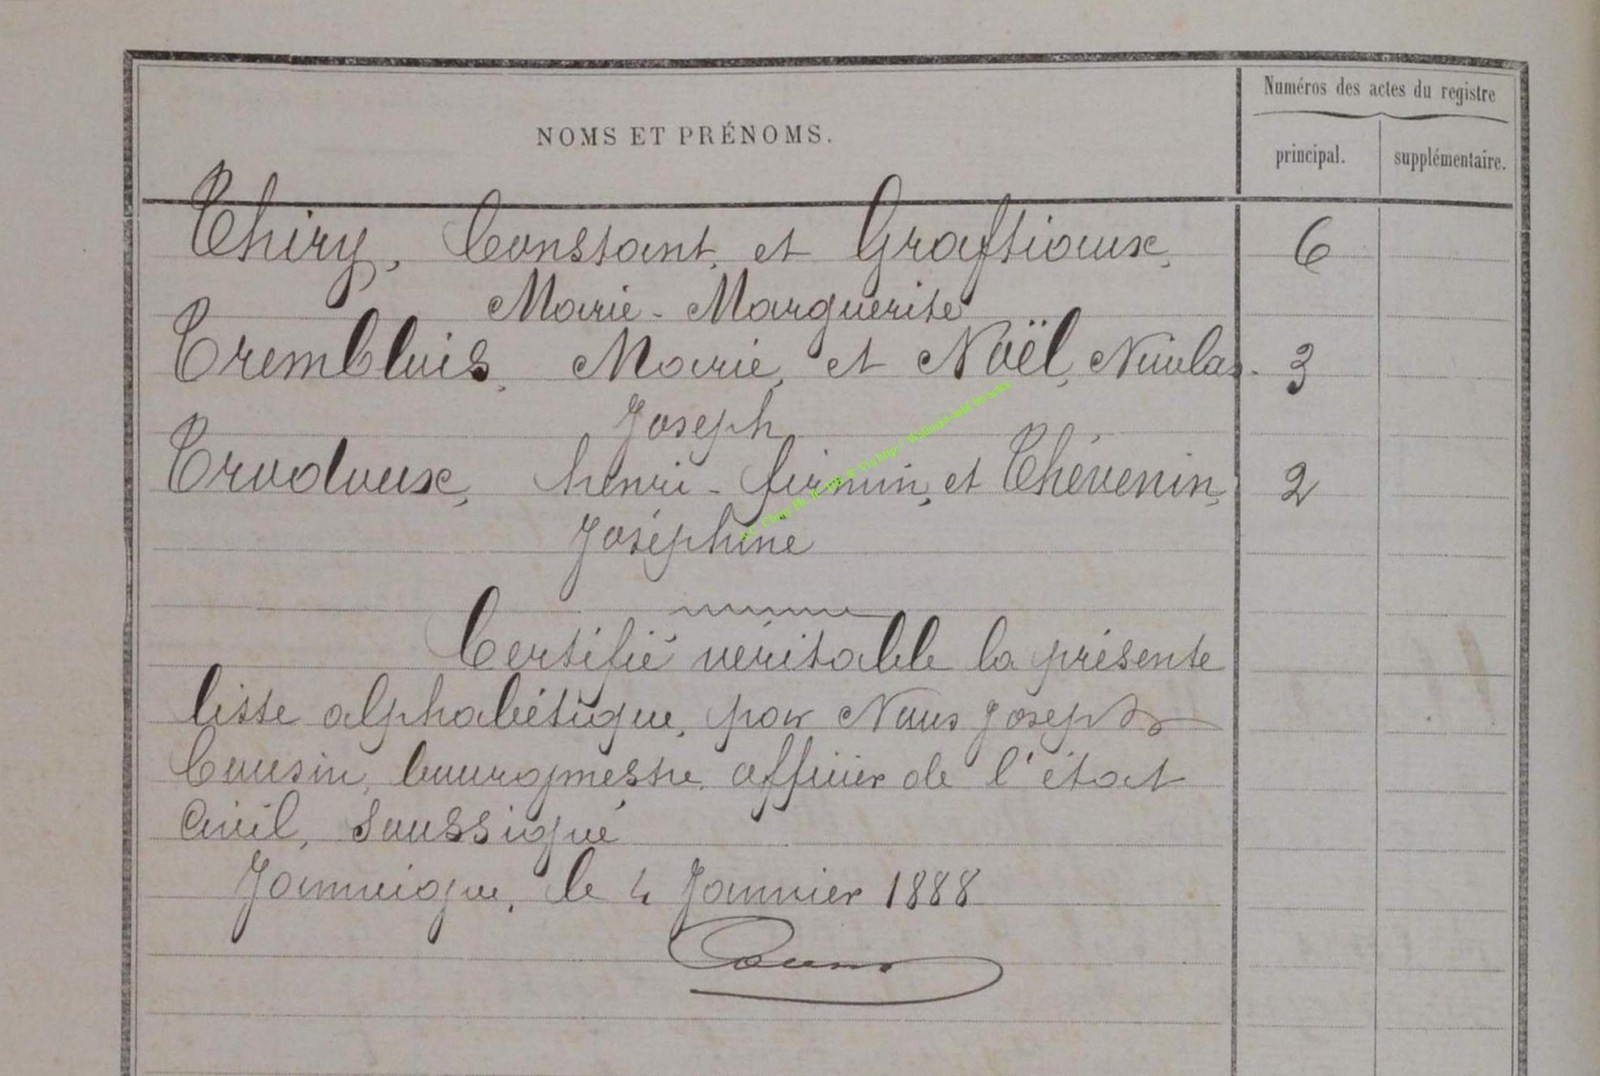 Numéros des actes du registre
NOMS ET PRÉNOMS.
principal. supplémentaire.
Thiry, Constant, et Graftiaux, 6
Marie-Marguerite
Tremblois, Marie, et Noël, Nicolas- 3
Joseph
Trodoux, henri-firmin, et Thévenin, 2
Joséphine
Certifié véritable la présente
liste alphabétique, par Nous Joseph
Cousin, bourgmestre officier de l'état
Civil, soussigné
Jamoigne, le 4 Janvier 1888
Cousin